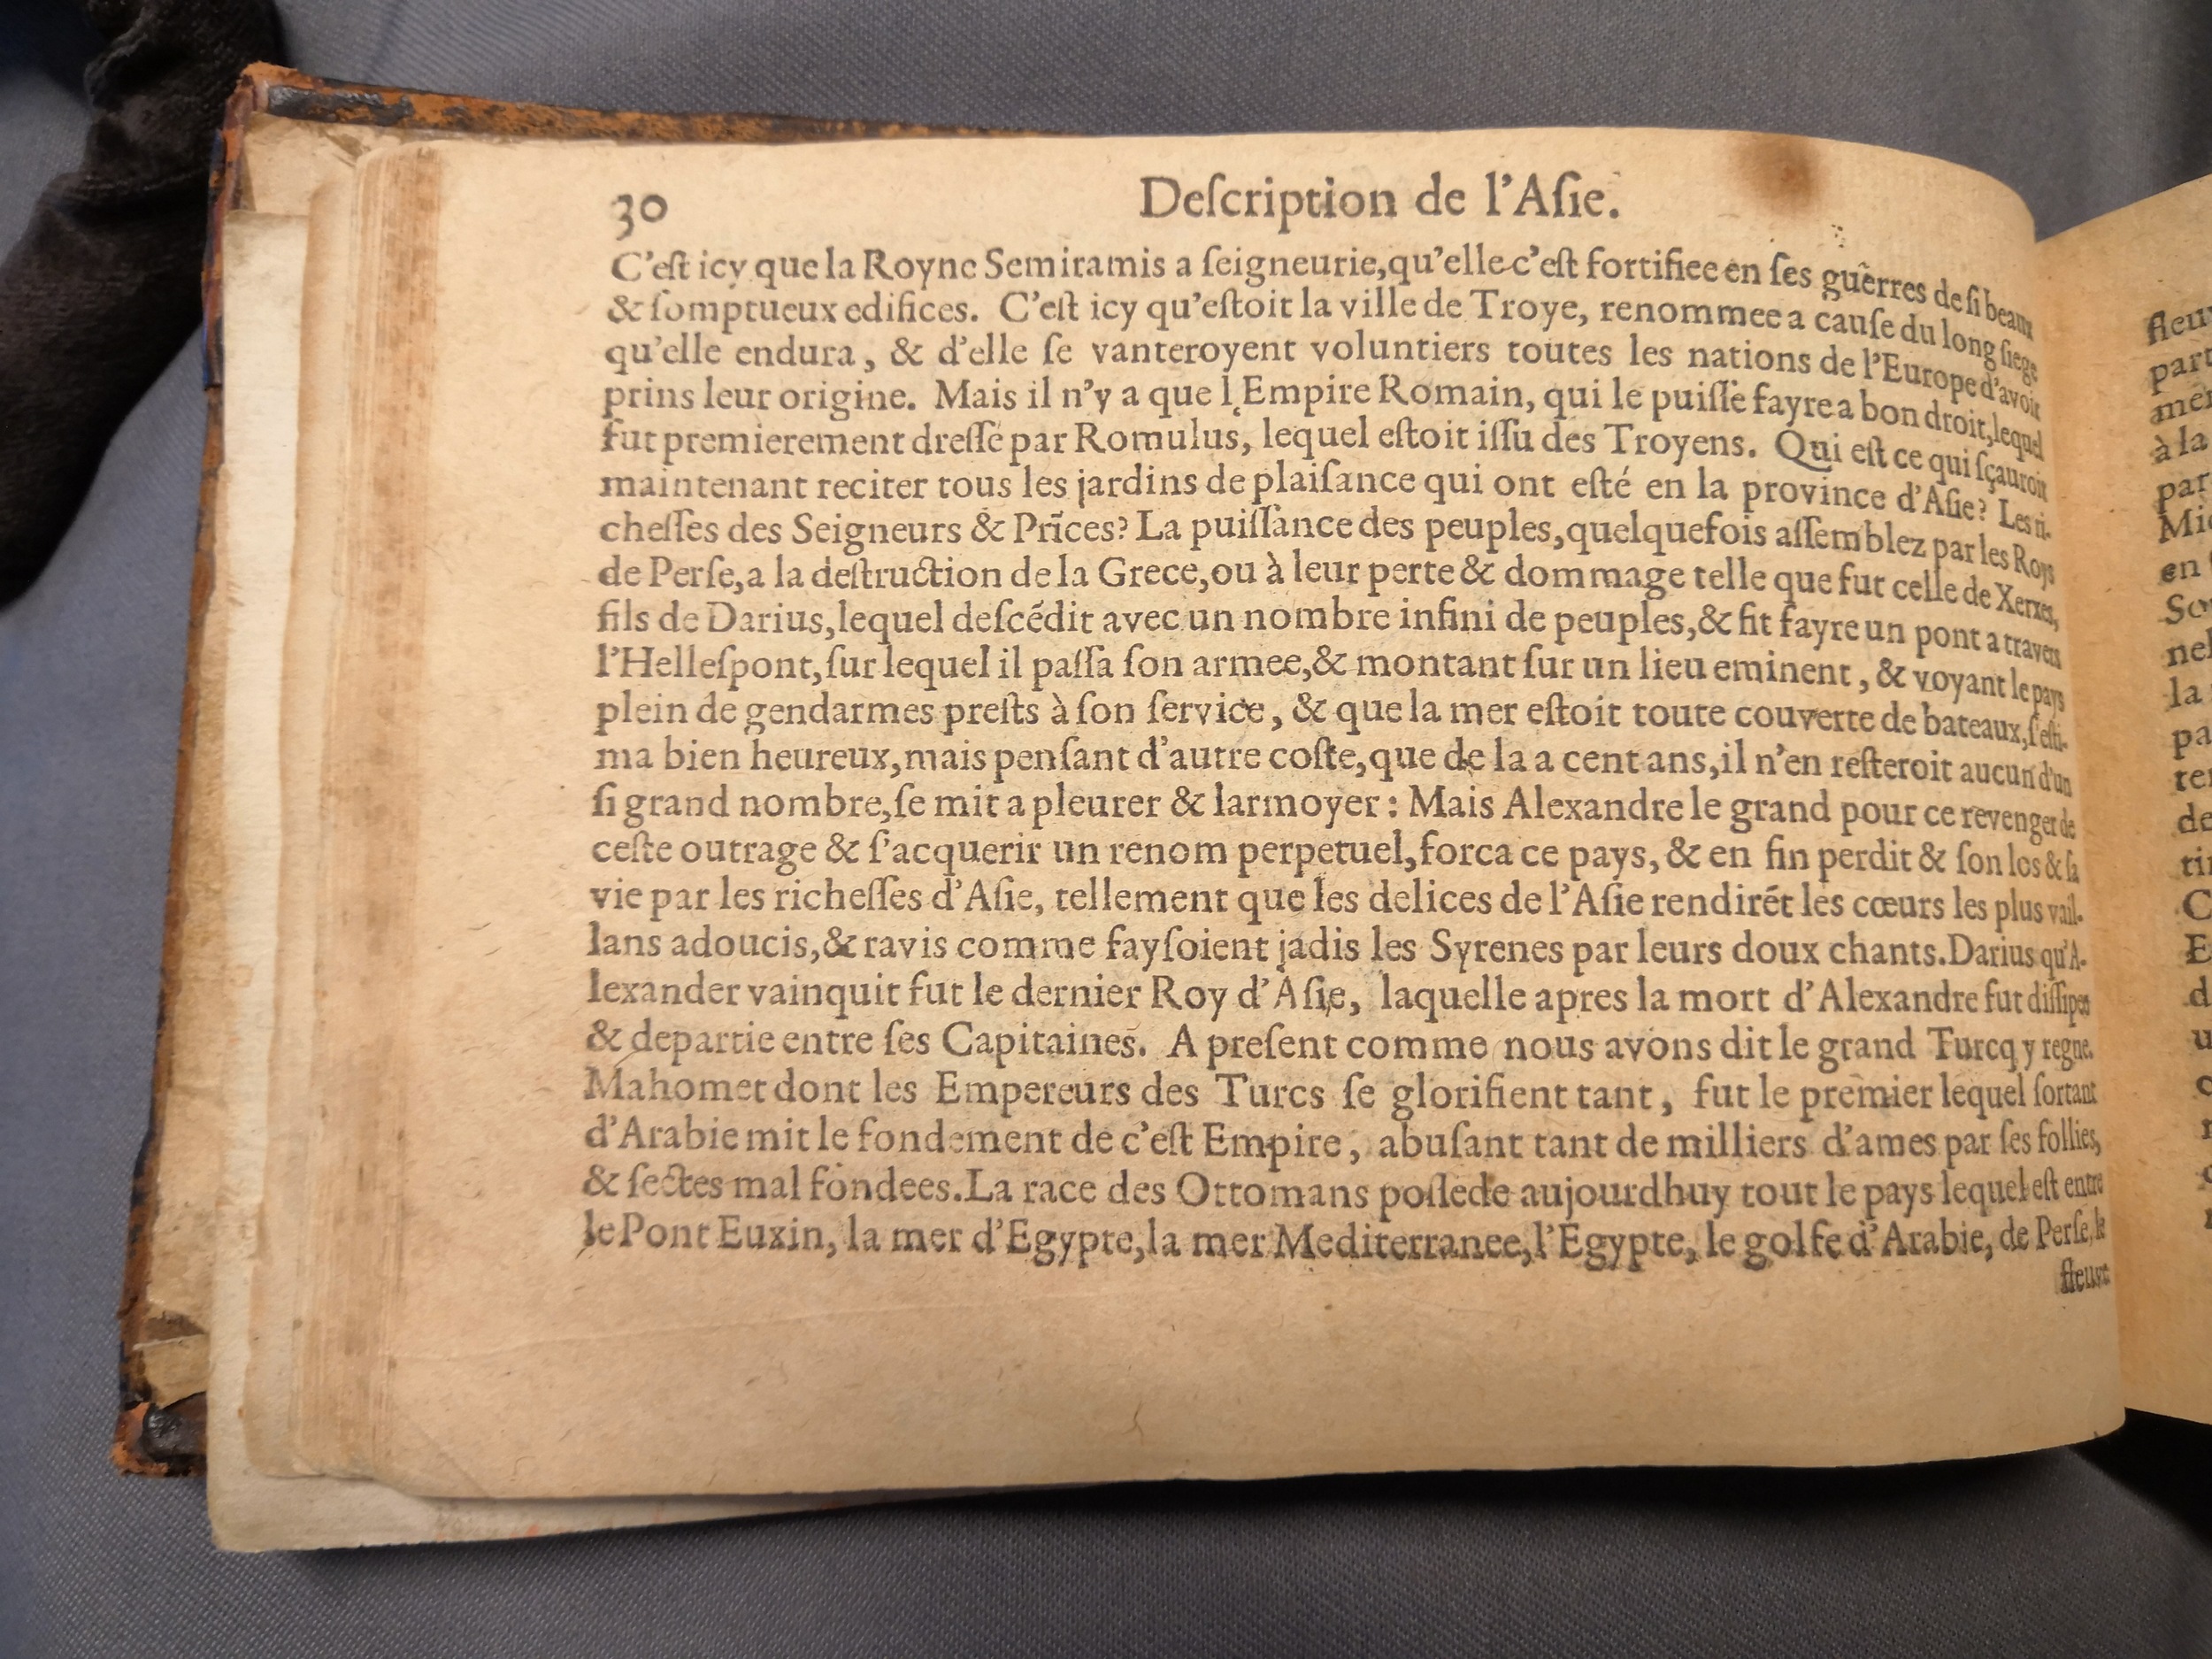 30
Deſcription de l'Aſie.
C'eſt icy que la Royne Semiramis a ſeigneurie,qu'elle c'eſt fortifiee en ſes guerres de ſi beaux
& ſomptueux edifices. C'eſt icy qu'eſtoit la ville de Troye, renommee a cauſe du long ſiege
qu'elle endura, & d'elle ſe vanteroyent voluntiers toutes les nations de l'Europe d'avoir
prins leur origine. Mais il n'y a que l'Empire Romain, qui le puiſſe fayre a bon droit,lequel
fut premierement dreſſé par Romulus, lequel eſtoit iſſu des Troyens. Qui eſt ce qui ſçauroit
maintenant reciter tous les jardins de plaiſance qui ont eſté en la province d'Aſie? Les ri-
cheſſes des Seigneurs & Prīces? La puiſſance des peuples,quelquefois aſſemblez par les Roys
de Perſe,a la deſtruction de la Grece,ou à leur perte & dommage telle que fut celle de Xerxes,
fils de Darius,lequel deſcēdit avec un nombre infini de peuples,& fit fayre un pont a travers
l'Helleſpont,ſur lequel il paſſa ſon armee,& montant ſur un lieu eminent, & voyant le pays
plein de gendarmes preſts à ſon ſervice, & que la mer eſtoit toute couverte de bateaux,ſ'eſti-
ma bien heureux,mais penſant d'autre coſte,que de la a cent ans,il n'en reſteroit aucun d'un
ſi grand nombre,ſe mit a pleurer & larmoyer : Mais Alexandre le grand pour ce revenger de
ceſte outrage & ſ'acquerir un renom perpetuel,forca ce pays, & en fin perdit & ſon los & ſa
vie par les richeſſes d'Aſie, tellement que les delices de l'Aſie rendirēt les cœurs les plus vail-
lans adoucis,& ravis comme fayſoient jadis les Syrenes par leurs doux chants.Darius qu'A-
lexander vainquit fut le dernier Roy d'Aſie, laquelle apres la mort d'Alexandre fut diſſipee
& departie entre ſes Capitaines. A preſent comme nous avons dit le grand Turcq y regne.
Mahomet dont les Empereurs des Turcs ſe glorifient tant, fut le premier lequel ſortant
d'Arabie mit le fondement de c'eſt Empire, abuſant tant de milliers d'ames par ſes follies,
& ſectes mal fondees.La race des Ottomans poſſede aujourdhuy tout le pays lequel eſt entre
le Pont Euxin, la mer d'Egypte,la mer Mediterranee,l'Egypte, le golfe d'Arabie, de Perſe, le
fleuve
à la
en
la
de